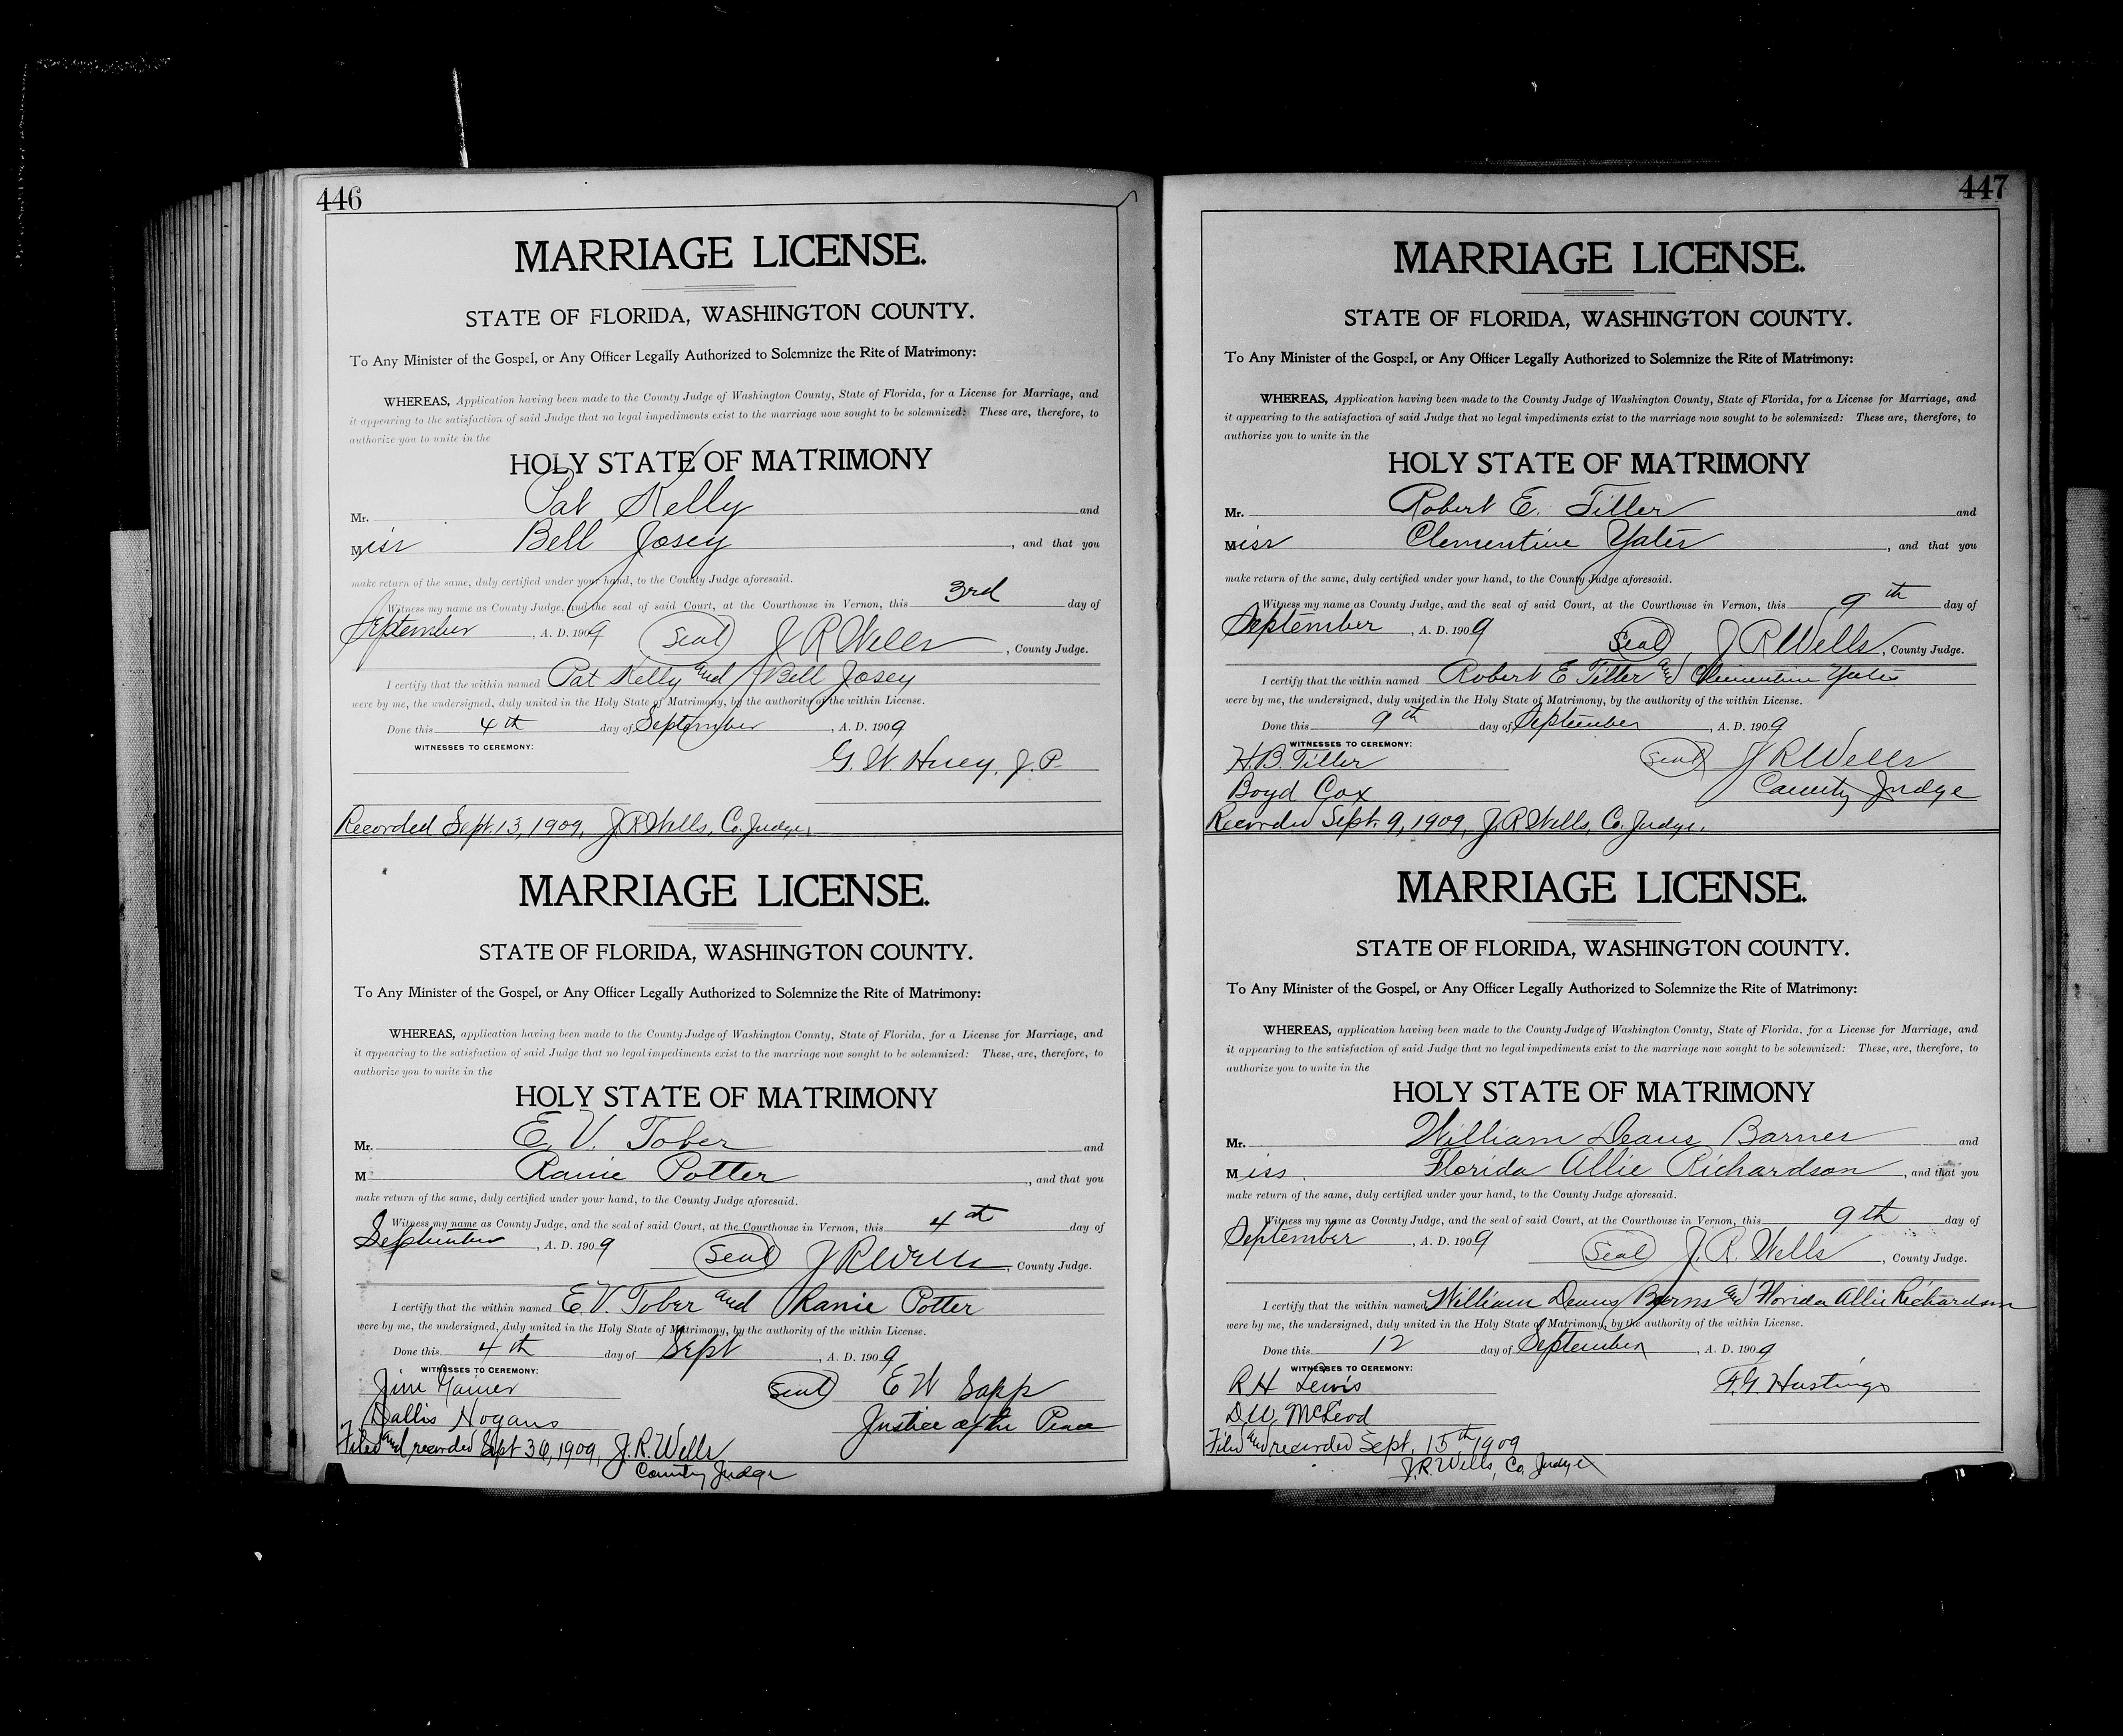 446
MARRIAGE LICENSE.
STATE OF FLORIDA, WASHINGTON COUNTY.
To Any Minister of the Gospel, or Any Officer Legally Authorized to Solemnize the Rite of Matrimony:
WHEREAS, Application having been made to the County Judge of Washington County, State of Florida, for a License for Marriage, and
it appearing to the satisfaction of said Judge that no legal impediments exist to the marriage now sought to be solemnized: These are, therefore, to
authorize you to unite in the
HOLY STATE OF MATRIMONY
Mr. Pat Kelly and
Miss Bell Josey, and that you
make return of the same, duly certified under your hand, to the County Judge aforesaid.
Witness my name as County Judge, and the seal of said Court, at the Courthouse in Vernon, this 3rd day of
September, A. D. 1909 Seal J R Wells, County Judge.
I certify that the within named Pat Kelly and Bell Josey
were by me, the undersigned, duly united in the Holy State of Matrimony, by the authority of the within License.
Done this 4th day of September, A. D. 1909
WITNESSES TO CEREMONY:
G. W. Huey, J. P.
Recorded Sept. 13, 1909, J. R. Wells, Co. Judge.
MARRIAGE LICENSE.
STATE OF FLORIDA, WASHINGTON COUNTY.
To Any Minister of the Gospel, or Any Officer Legally Authorized to Solemnize the Rite of Matrimony:
WHEREAS, application having been made to the County Judge of Washington County, State of Florida, for a License for Marriage, and
it appearing to the satisfaction of said Judge that no legal impediments exist to the marriage now sought to be solemnized: These, are, therefore, to
authorize you to unite in the
HOLY STATE OF MATRIMONY
Mr. E. V. Tober and
M Ranie Potter, and that you
make return of the same, duly certified under your hand, to the County Judge aforesaid.
Witness my name as County Judge, and the seal of said Court, at the Courthouse in Vernon, this 4th day of
September, A. D. 1909 Seal J R Wells, County Judge.
I certify that the within named E. V. Tober and Ranie Potter
were by me, the undersigned, duly united in the Holy State of Matrimony, by the authority of the within License.
Done this 4th day of Sept, A. D. 1909
WITNESSES TO CEREMONY:
Jim Seal E W Sapp
Dallis Hogans Justice of the Peace
Filed and recorded Sept 1909, J. R. Wells
County Judge
447
MARRIAGE LICENSE.
STATE OF FLORIDA, WASHINGTON COUNTY.
To Any Minister of the Gospel, or Any Officer Legally Authorized to Solemnize the Rite of Matrimony:
WHEREAS, Application having been made to the County Judge of Washington County, State of Florida, for a License for Marriage, and
it appearing to the satisfaction of said Judge that no legal impediments exist to the marriage now sought to be solemnized: These are, therefore, to
authorize you to unite in the
HOLY STATE OF MATRIMONY
Mr. Robert E. Tiller and
Miss Clementine Yates, and that you
make return of the same, duly certified under your hand, to the County Judge aforesaid.
Witness my name as County Judge, and the seal of said Court, at the Courthouse in Vernon, this 9th day of
September, A. D. 1909 Seal J R Wells, County Judge.
I certify that the within named Robert E Tiller and Clementine Yates
were by me, the undersigned, duly united in the Holy State of Matrimony, by the authority of the within License.
Done this 9th day of September, A. D. 1909
WITNESSES TO CEREMONY:
H. B. Tiller Seal J R Wells
Boyd Cox County Judge
Recorded Sept. 9, 1909, J. R. Wells, Co. Judge.
MARRIAGE LICENSE.
STATE OF FLORIDA, WASHINGTON COUNTY.
To Any Minister of the Gospel, or Any Officer Legally Authorized to Solemnize the Rite of Matrimony:
WHEREAS, application having been made to the County Judge of Washington County, State of Florida, for a License for Marriage, and
it appearing to the satisfaction of said Judge that no legal impediments exist to the marriage now sought to be solemnized: These, are, therefore, to
authorize you to unite in the
HOLY STATE OF MATRIMONY
Mr. William Deans Barnes and
Miss. Florida Allie Richardson, and that you
make return of the same, duly certified under your hand, to the County Judge aforesaid.
Witness my name as County Judge, and the seal of said Court, at the Courthouse in Vernon, this 9th day of
September, A. D. 1909 Seal J. R. Wells, County Judge.
I certify that the within named William Deans Berns and Florida Allie Richardson
were by me, the undersigned, duly united in the Holy State of Matrimony, by the authority of the within License.
Done this 12 day of September, A. D. 1909
WITNESSES TO CEREMONY:
R H Lewis F. G. Hastings
D. W. McLeod
Filed and recorded Sept. 15th 1909
J. R. Wells, Co. Judge